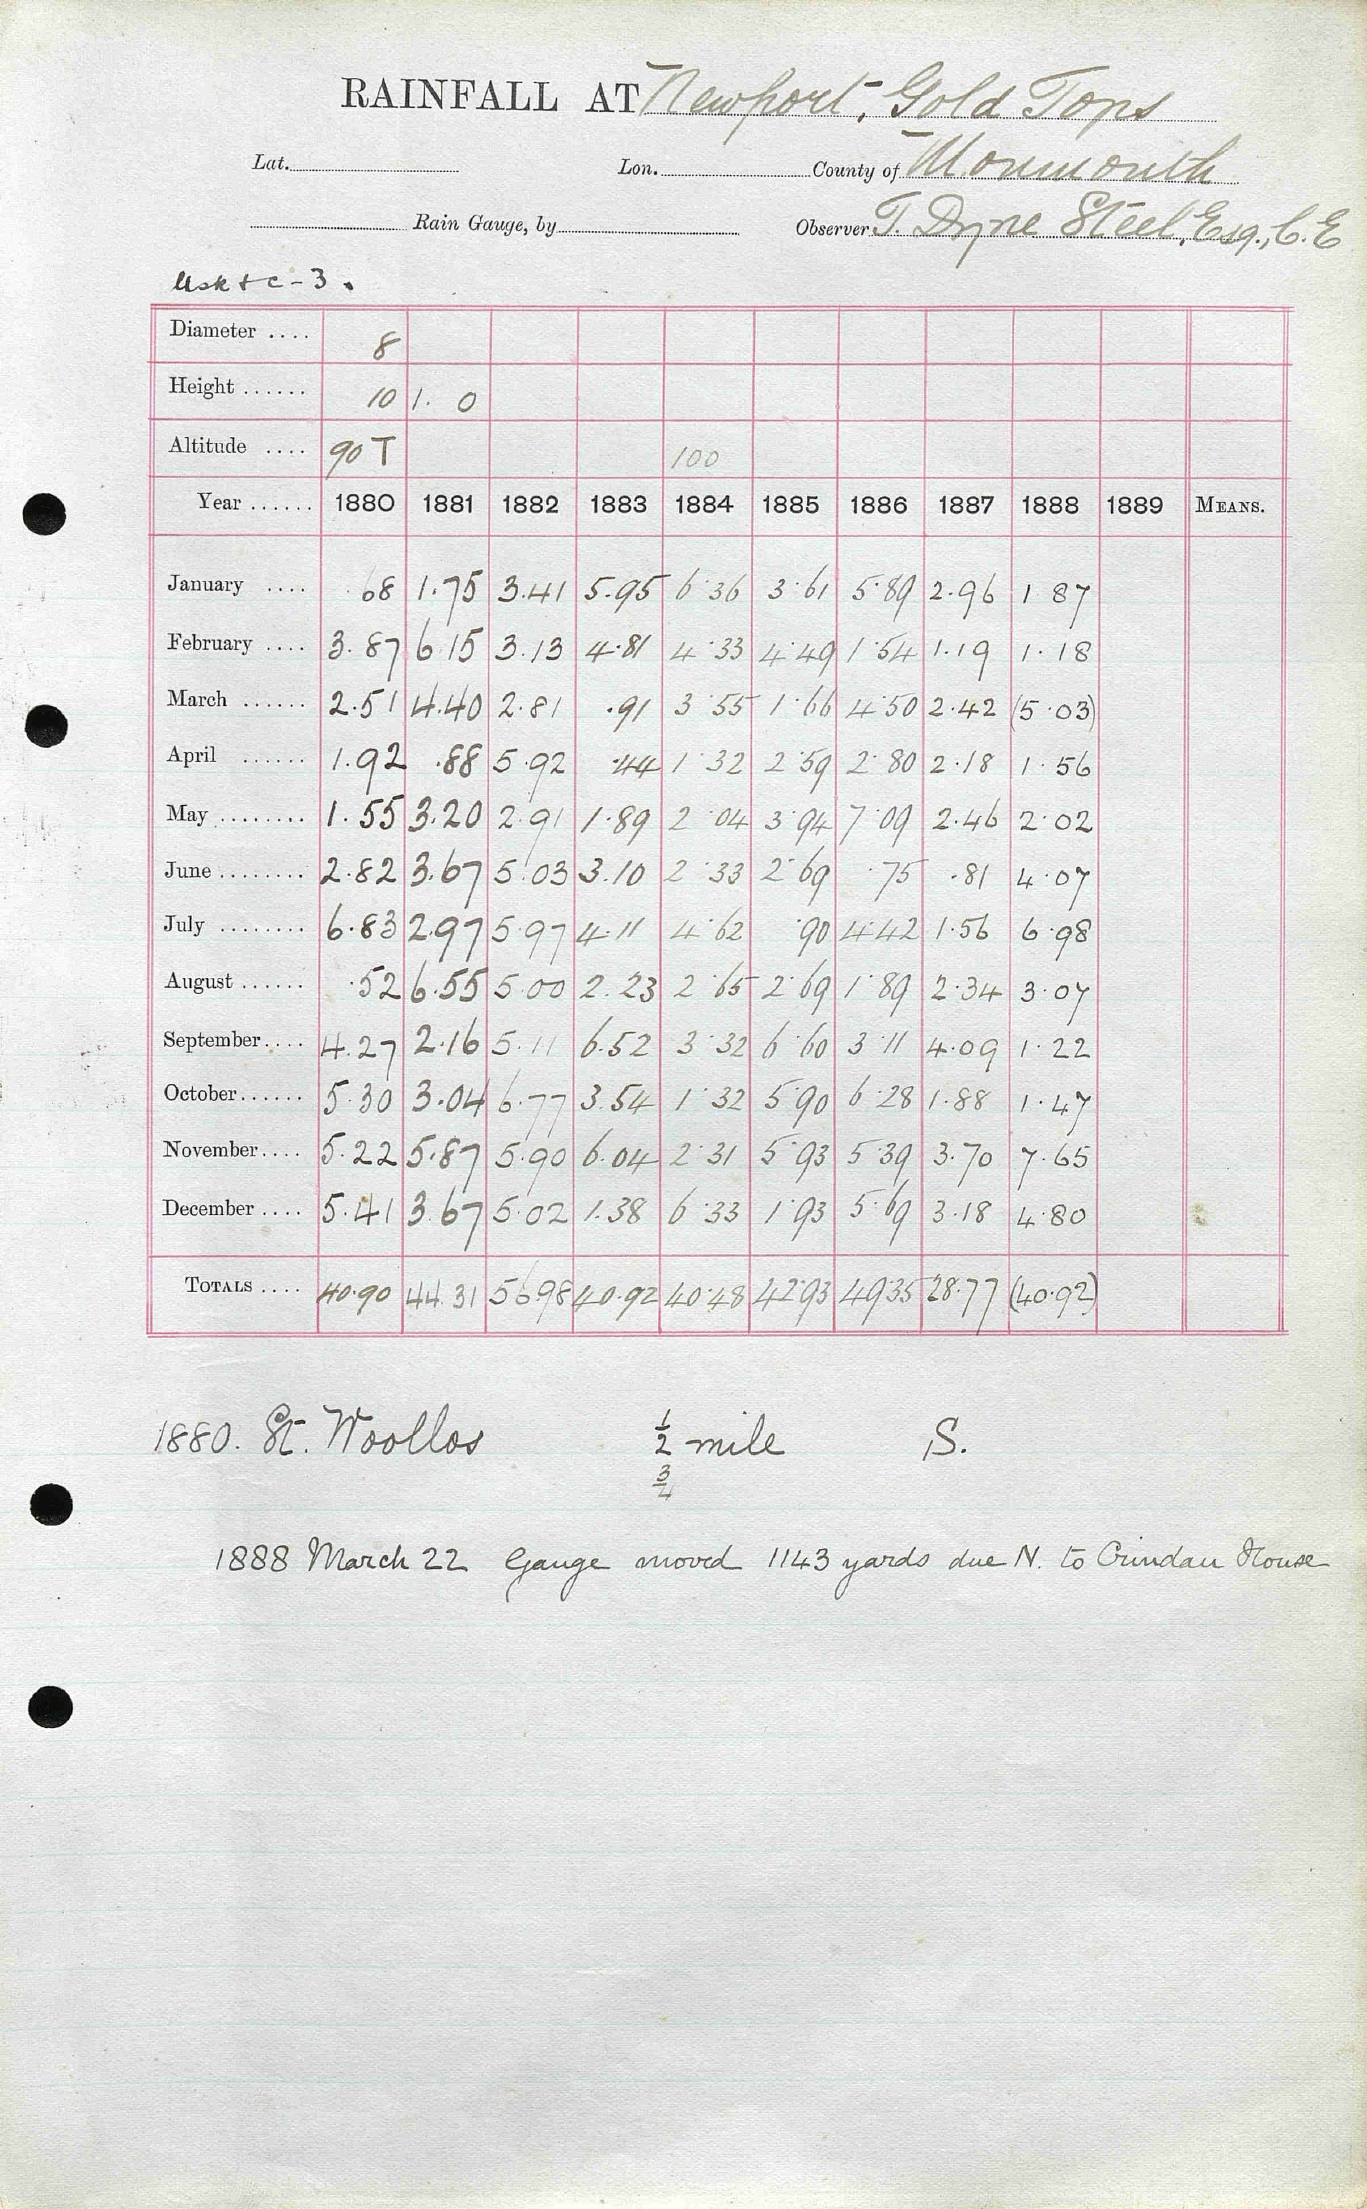 RAINFALL AT Newport, Gold Tops
Lat. Lon. County of Monmouth
Rain Gauge, by Observer T. Dyne Steel, Esq., C.E
Usk & c - 3.
Diameter .... 8
Height ...... 10 1. 0
Altitude .... 90 T 100
Year ...... 1880 1881 1882 1883 1884 1885 1886 1887 1888 1889 MEANS.
January .... .68 1.75 3.41 5.95 6.36 3.61 5.89 2.96 1.87
February .... 3.87 6.15 3.13 4.81 4.33 4.49 1.54 1.19 1.18
March ...... 2.51 4.40 2.81 .91 3.55 1.66 4.50 2.42 (5.03)
April ...... 1.92 .88 5.92 .44 1.32 2.59 2.80 2.18 1.56
May ........ 1.55 3.20 2.91 1.89 2.04 3.94 7.09 2.46 2.02
June ........ 2.82 3.67 5.03 3.10 2.33 2.69 .75 .81 4.07
July ........ 6.83 2.97 5.97 4.11 4.62 .90 4.42 1.56 6.98
August ...... .52 6.55 5.00 2.23 2.65 2.69 1.89 2.34 3.07
September .... 4.27 2.16 5.11 6.52 3.32 6.60 3.11 4.09 1.22
October ...... 5.30 3.04 6.77 3.54 1.32 5.90 6.28 1.88 1.47
November .... 5.22 5.87 5.90 6.04 2.31 5.93 5.39 3.70 7.65
December .... 5.41 3.67 5.02 1.38 6.33 1.93 5.69 3.18 4.80
TOTALS .... 40.90 44.31 56.98 40.92 40.48 42.93 49.35 28.77 (40.92)
1880. St. Woollos 1/2 mile S.
3/4
1888 March 22 Gauge moved 1143 yards due N. to Crindau House